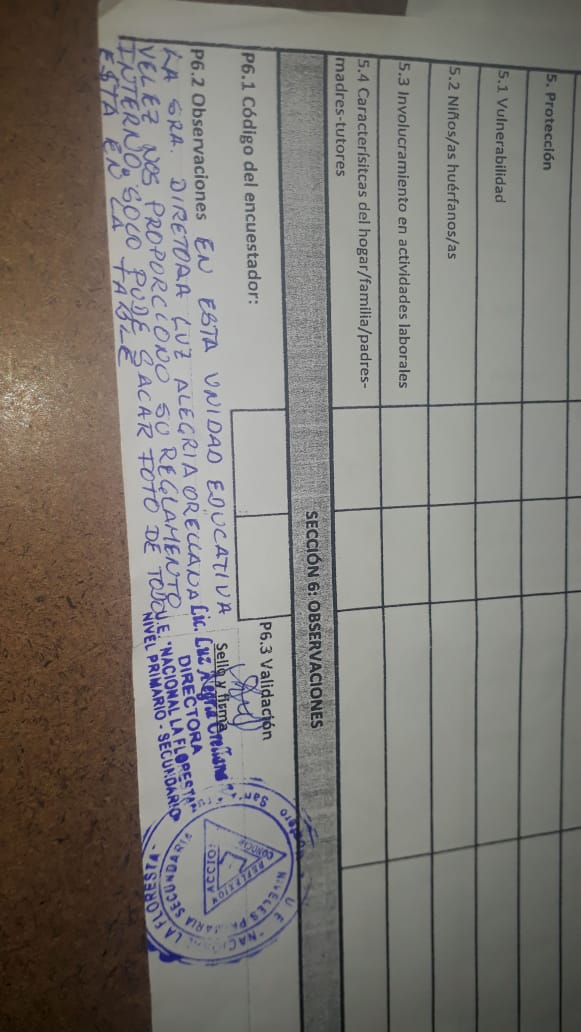 5. Protección
5.1 Vulnerabilidad
5.2 Niños/as huérfanos/as
5.3 Involucramiento en actividades laborales
5.4 Caracterísitcas del hogar/familia/padres-
madres-tutores
SECCIÓN 6: OBSERVACIONES
P6.1 Código del encuestador:
P6.3 Validación
P6.2 Observaciones EN ESTA UNIDAD EDUCATIVA
LA SRA. DIRETORA LUZ ALEGRIA ORELLANA
VELEZ NOS PROPORCIONO SU REGLAMENTO
INTERNO, SOLO PUDE SACAR FOTO DE TODO
ESTA EN LA TABLE
Sello y firma
Lic. Luz Alegria Orellana
DIRECTORA
U.E. "NACIONAL LA FLORESTA"
NIVEL PRIMARIO - SECUNDARIO
U. E. "NACIONAL LA FLORESTA"
NIVELES PRIMARIA SECUNDARIA
REFLEXION
ACCION
CONOCER